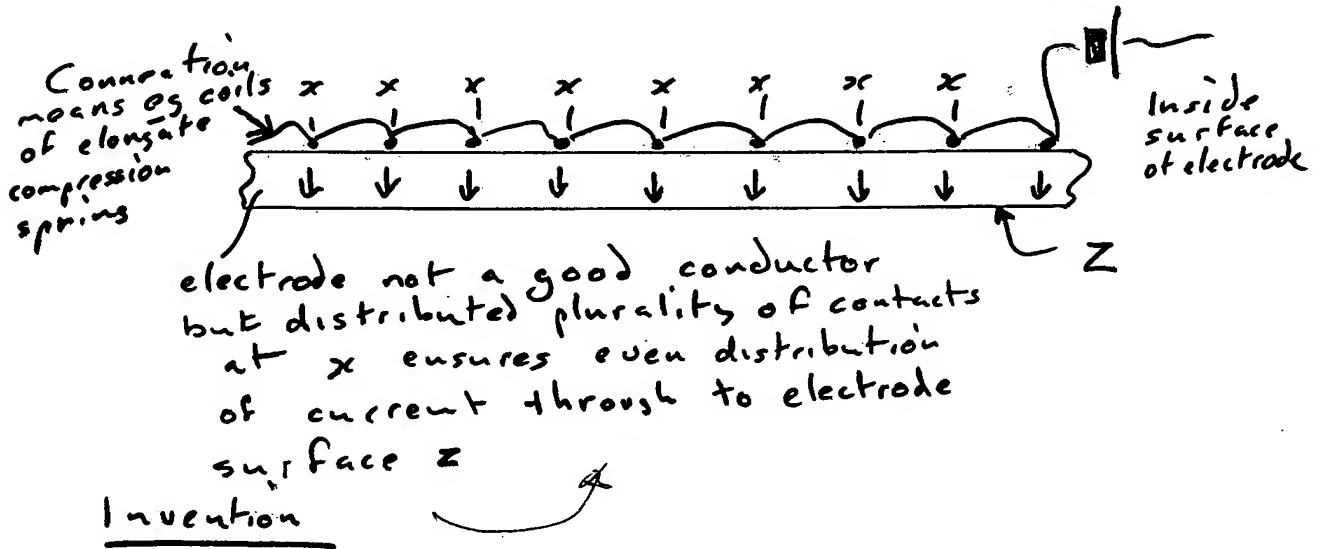 Connection
means eg coils
of elongate
compression
spring
x x x x x x x x
Inside
surface
of electrode
Z
electrode not a good conductor
but distributed plurality of contacts
at x ensures even distribution
of current through to electrode
surface z
Invention